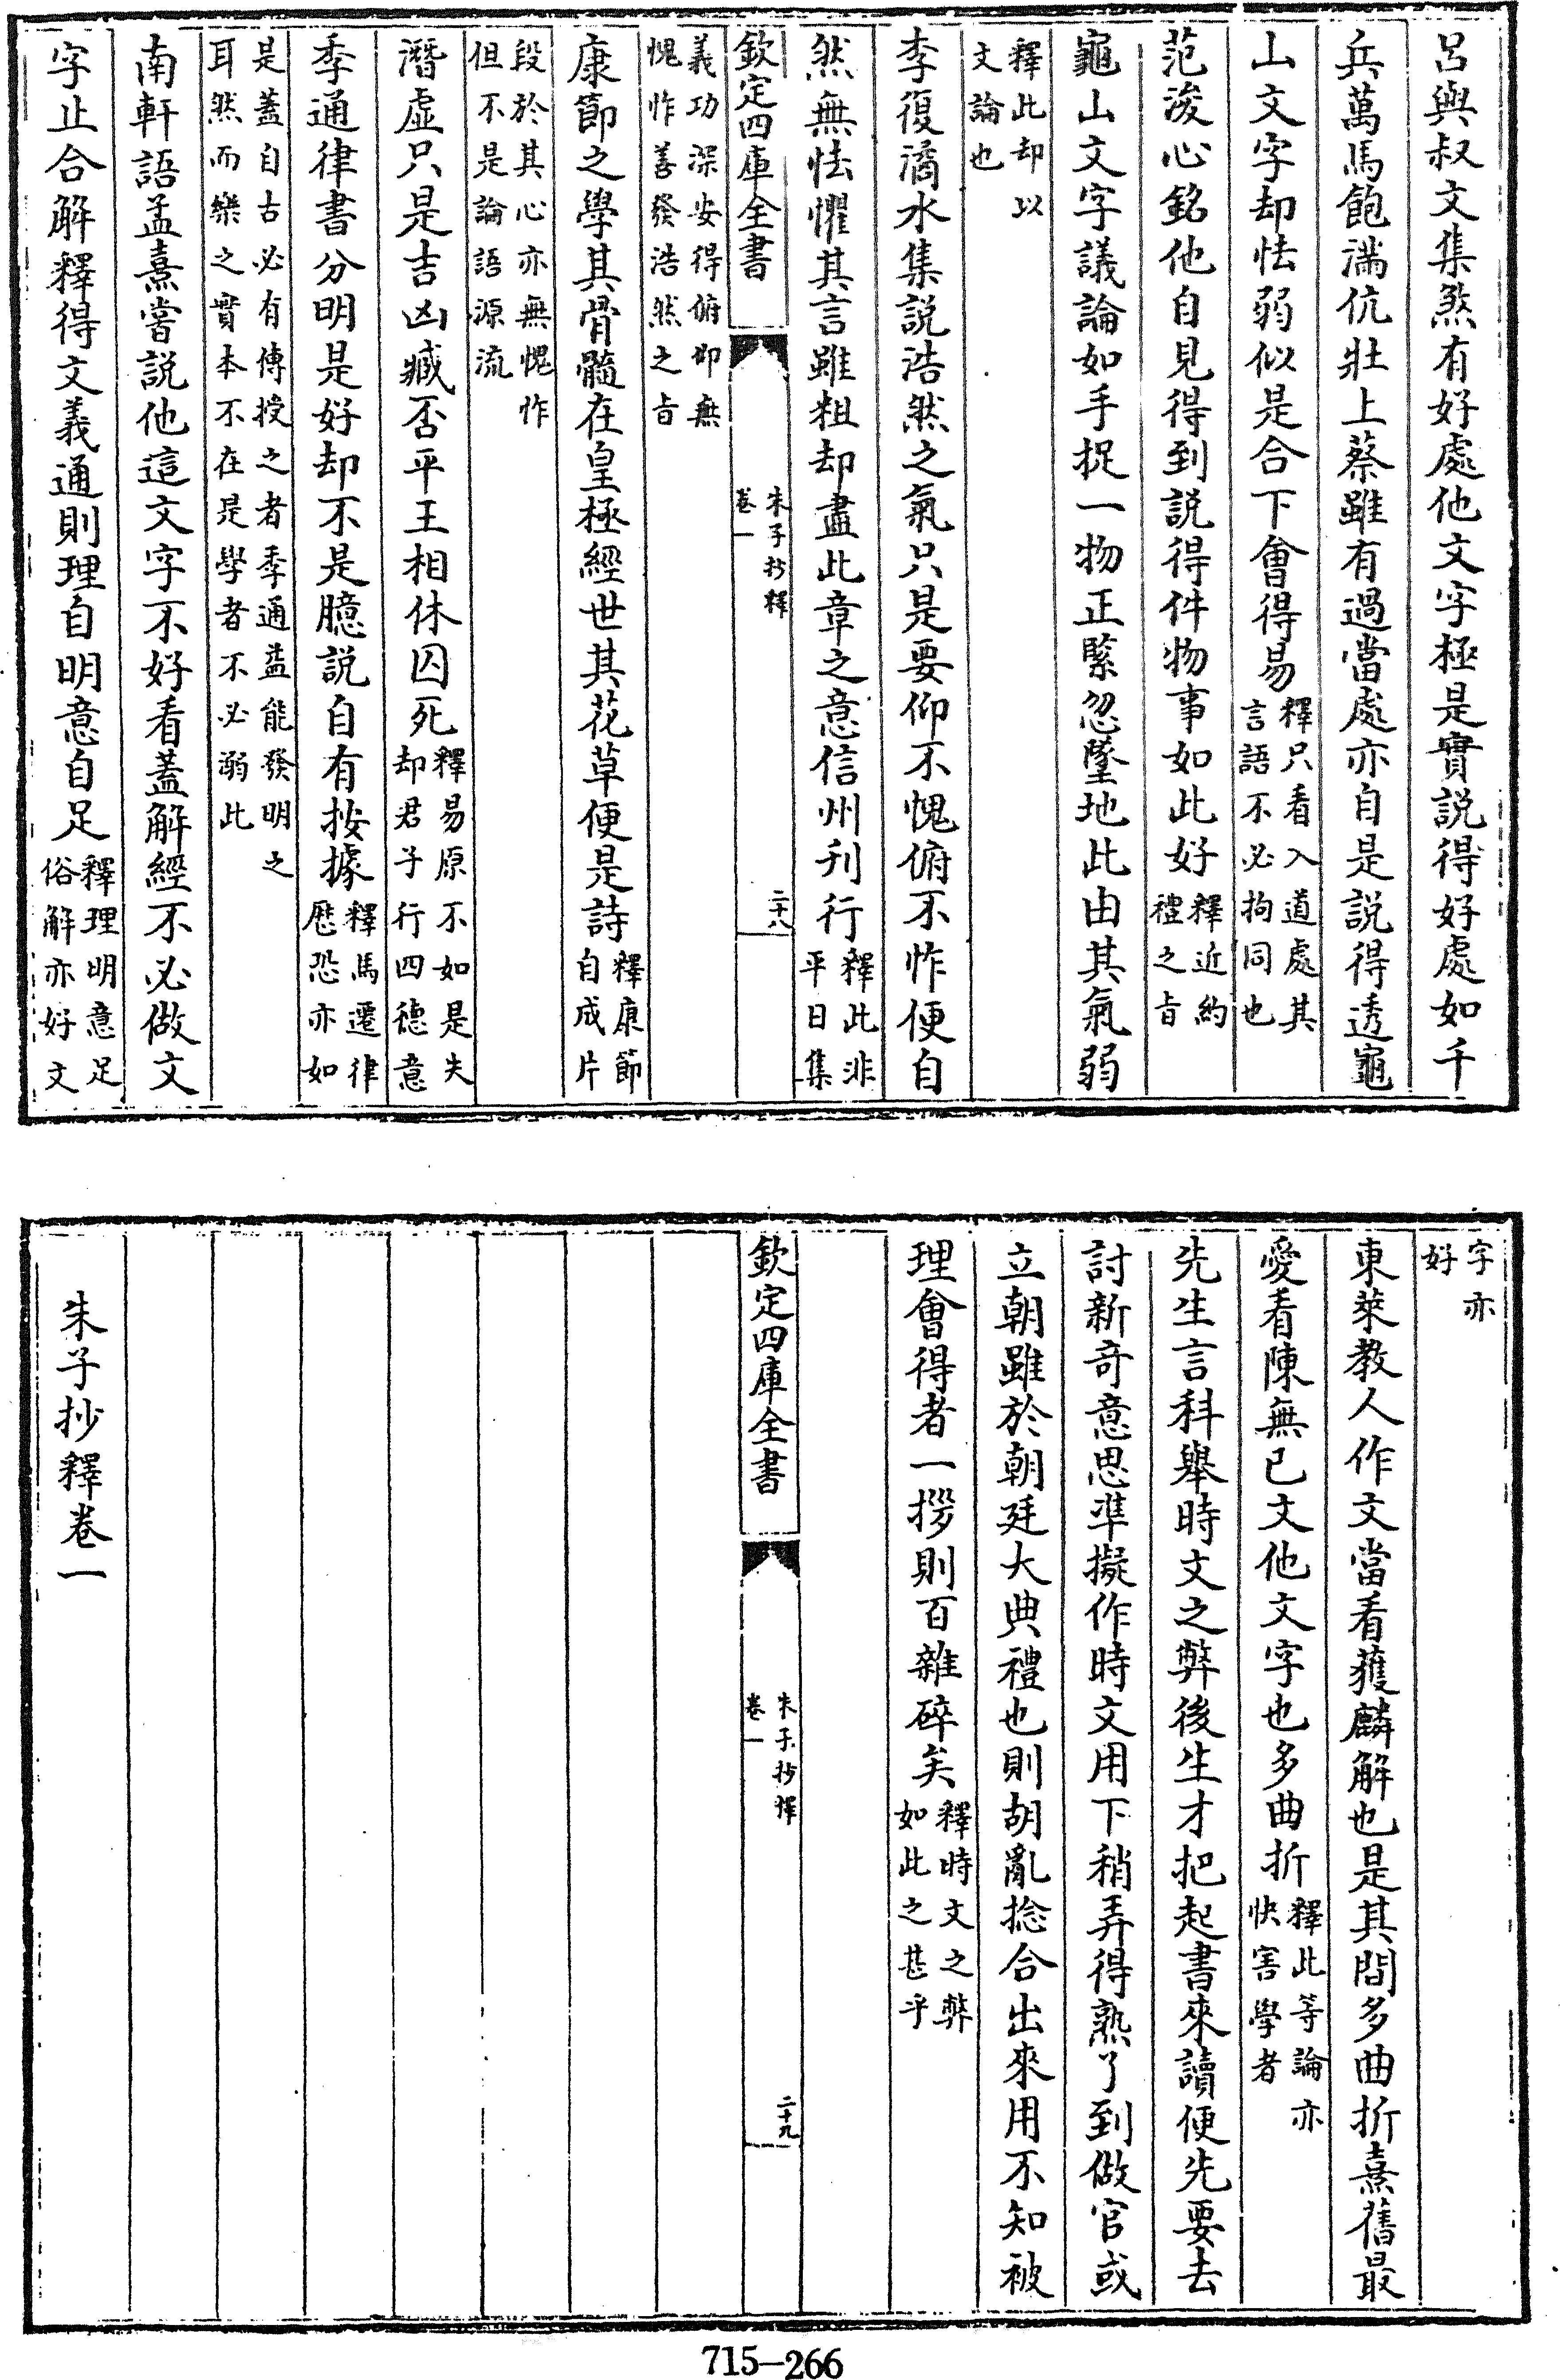 呂與叔文集煞有好處他文字極是實說得好處如千
兵萬馬飽滿伉壯上蔡雖有過當處亦自是說得透龜
山文字却怯弱似是合下會得易釋只看入道處其言語不必拘同也
范浚心銘他自見得到說得件物事如此好釋近約禮之旨
龜山文字議論如手捉一物正緊忽墜地此由其氣弱
釋此却以文論也
李復潏水集說浩然之氣只是要仰不愧俯不怍便自
然無怯懼其言雖粗却盡此章之意信州刊行釋此非平日集
欽定四庫全書
朱子抄釋
卷一
二十八
義功深安得俯仰無愧怍善發浩然之旨
康節之學其骨髓在皇極經世其花草便是詩釋康節自成片
段於其心亦無愧怍但不是論語源流
潛虛只是吉凶臧否平王相休囚死釋易原不如是失却君子行四德意
季通律書分明是好却不是臆說自有按據釋馬遷律厯恐亦如
是蓋自古必有傳授之者季通益能發明之耳然而樂之實本不在是學者不必溺此
南軒語孟熹嘗說他這文字不好看蓋解經不必做文
字止合解釋得文義通則理自明意自足釋理明意足俗解亦好文
字亦好
東萊教人作文當看獲麟解也是其間多曲折熹舊最
愛看陳無已文他文字也多曲折釋此等論亦快害學者
先生言科舉時文之弊後生才把起書來讀便先要去
討新奇意思準擬作時文用下稍弄得熟了到做官或
立朝雖於朝廷大典禮也則胡亂捻合出來用不知被
理會得者一拶則百雜碎矣釋時文之弊如此之甚乎
欽定四庫全書
朱子抄釋
卷一
二十九
朱子抄釋卷一
715-266